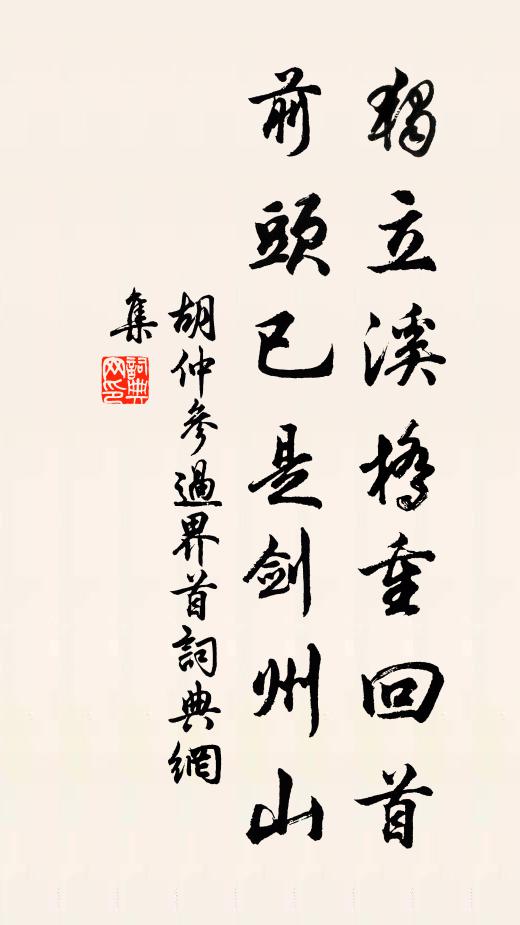 獨立溪橋重回首
前頭已是剑州山
胡仲參過界首詞典網
集
詞典
网印